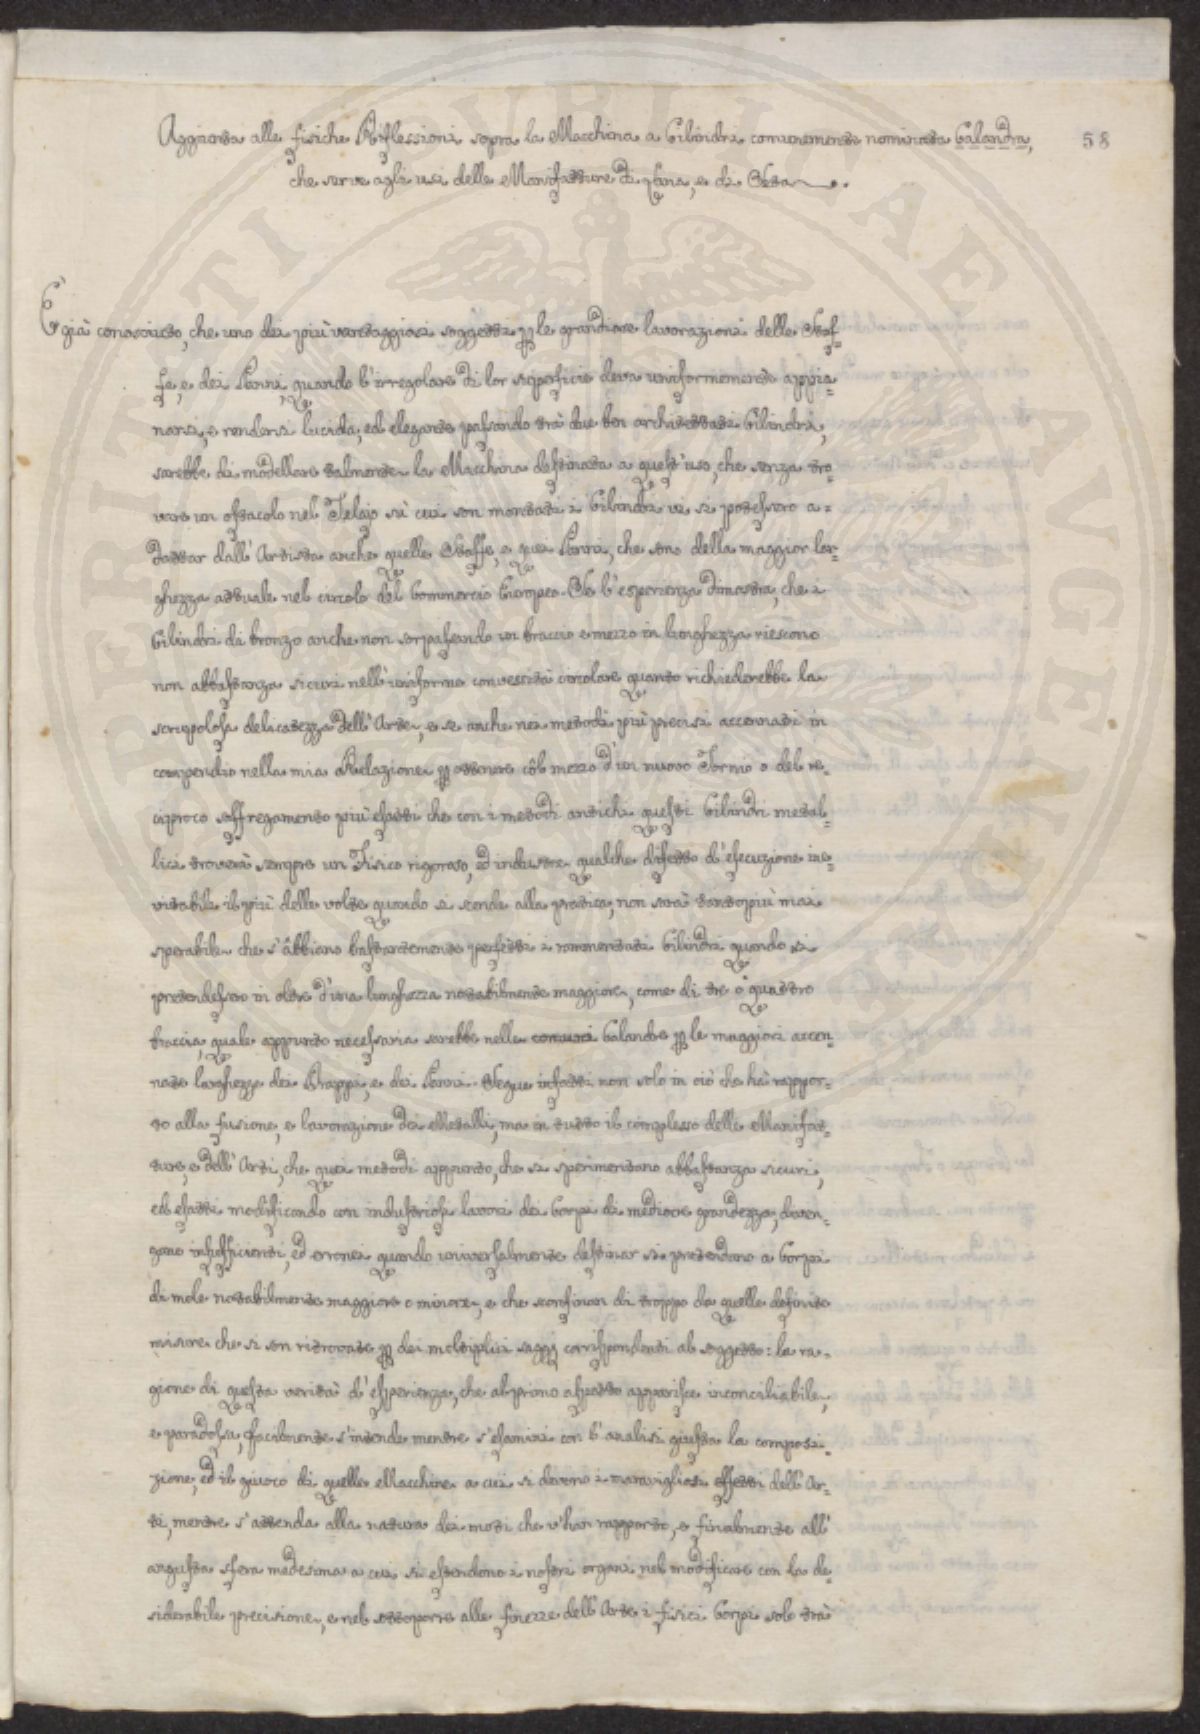 Aggiunta alle fisiche Riflessioni sopra la Macchina a Cilindri comunemente nominata Calandra,
58
che serve agli usi delle Manifatture di Lana, e di Seta
È già conosciuto, che uno dei più vantaggiosi soggetti p le grandiose lavorazioni delle Stof-
fe, e dei Panni, quando l'irregolare di lor superficie deva uniformemente appia-
narsi, e rendersi lucida, ed elegante passando trà due ben architettati Cilindri,
sarebbe di modellare talmente la Macchina destinata a quest'uso, che senza tro-
vare un ostacolo nel Telajo sù cui son montati i Cilindri vi si potessero a-
dattar dall'Artista anche quelle Stoffe, e quei Panni, che sono della maggior lar-
ghezza attuale nel circolo del Commercio Europeo. Se l'esperienza dimostra, che i
Cilindri di bronzo anche non sorpassando un braccio e mezzo in lunghezza riescono
non abbastanza sicuri nell'uniforme convessità circolare quanto richiederebbe la
scrupolosa delicatezza dell'Arte, e se anche nei metodi più precisi accennati in
compendio nella mia Relazione p ottenere col mezzo d'un nuovo Tornio o del re-
ciproco soffregamento più esatti che con i metodi antichi questi Cilindri metal-
lici troverà sempre un Fisico rigoroso, ed industre qualche difetto d'esecuzione ine-
vitabile il più delle volte quando si scende alla pratica, non sarà tantopiù mai
sperabile che s'abbiano bastantemente perfetti i rammentati Cilindri quando si
pretendessero in oltre d'una lunghezza notabilmente maggiore, come di tre o quattro
braccia, quale appunto necessaria sarebbe nelle comuni Calandre p le maggiori accen-
nate larghezze dei Drappi, e dei Panni. Segue infatti non solo in ciò che hà rappor-
to alla fusione, e lavorazione dei Metalli, ma in tutto il complesso delle Manifat-
ture, e dell'Arti, che quei metodi appunto, che si sperimentano abbastanza sicuri,
ed esatti modificando con industriosi lavori dei Corpi di mediocre grandezza, diven-
gano insufficienti, ed erronei quando universalmente destinar si pretendano a Corpi
di mole notabilmente maggiore o minore, e che sconfinan di troppo da quelle definite
misure che si son ritrovate p dei moltiplici saggi corrispondenti al soggetto: la ra-
gione di questa verità d'esperienza, che al primo aspetto apparisce inconciliabile,
e paradossa, facilmente s'intende mentre s'esamini con l'analisi giusta la composi-
zione, ed il giuoco di quelle Macchine a cui si devono i maravigliosi effetti dell'Ar-
ti, mentre s'attenda alla natura dei moti che v'han rapporto, e finalmente all'
angusta sfera medesima a cui si estendono i nostri organi nel modificare con la de-
siderabile precisione, e nel sottoporre alle finezze dell'Arte i fisici Corpi solo trà